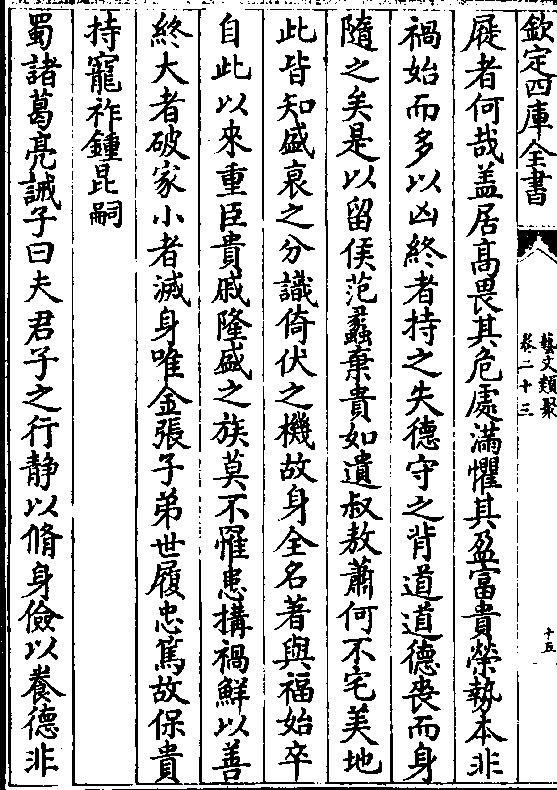 欽定四庫全書
藝文類聚
卷二十三
十五
屣者何哉盖居髙畏其危處滿懼其盈富貴榮埶本非
禍始而多以凶終者持之失德守之背道道德喪而身
隨之矣是以留侯范蠡棄貴如遺叔敖蕭何不宅美地
此皆知盛衰之分識倚伏之機故身全名著與福始卒
自此以來重臣貴戚隆盛之族莫不罹患搆禍鮮以善
終大者破家小者滅身唯金張子弟世履忠篤故保貴
持寵祚鍾昆嗣
蜀諸葛亮誡子曰夫君子之行静以脩身儉以養德非